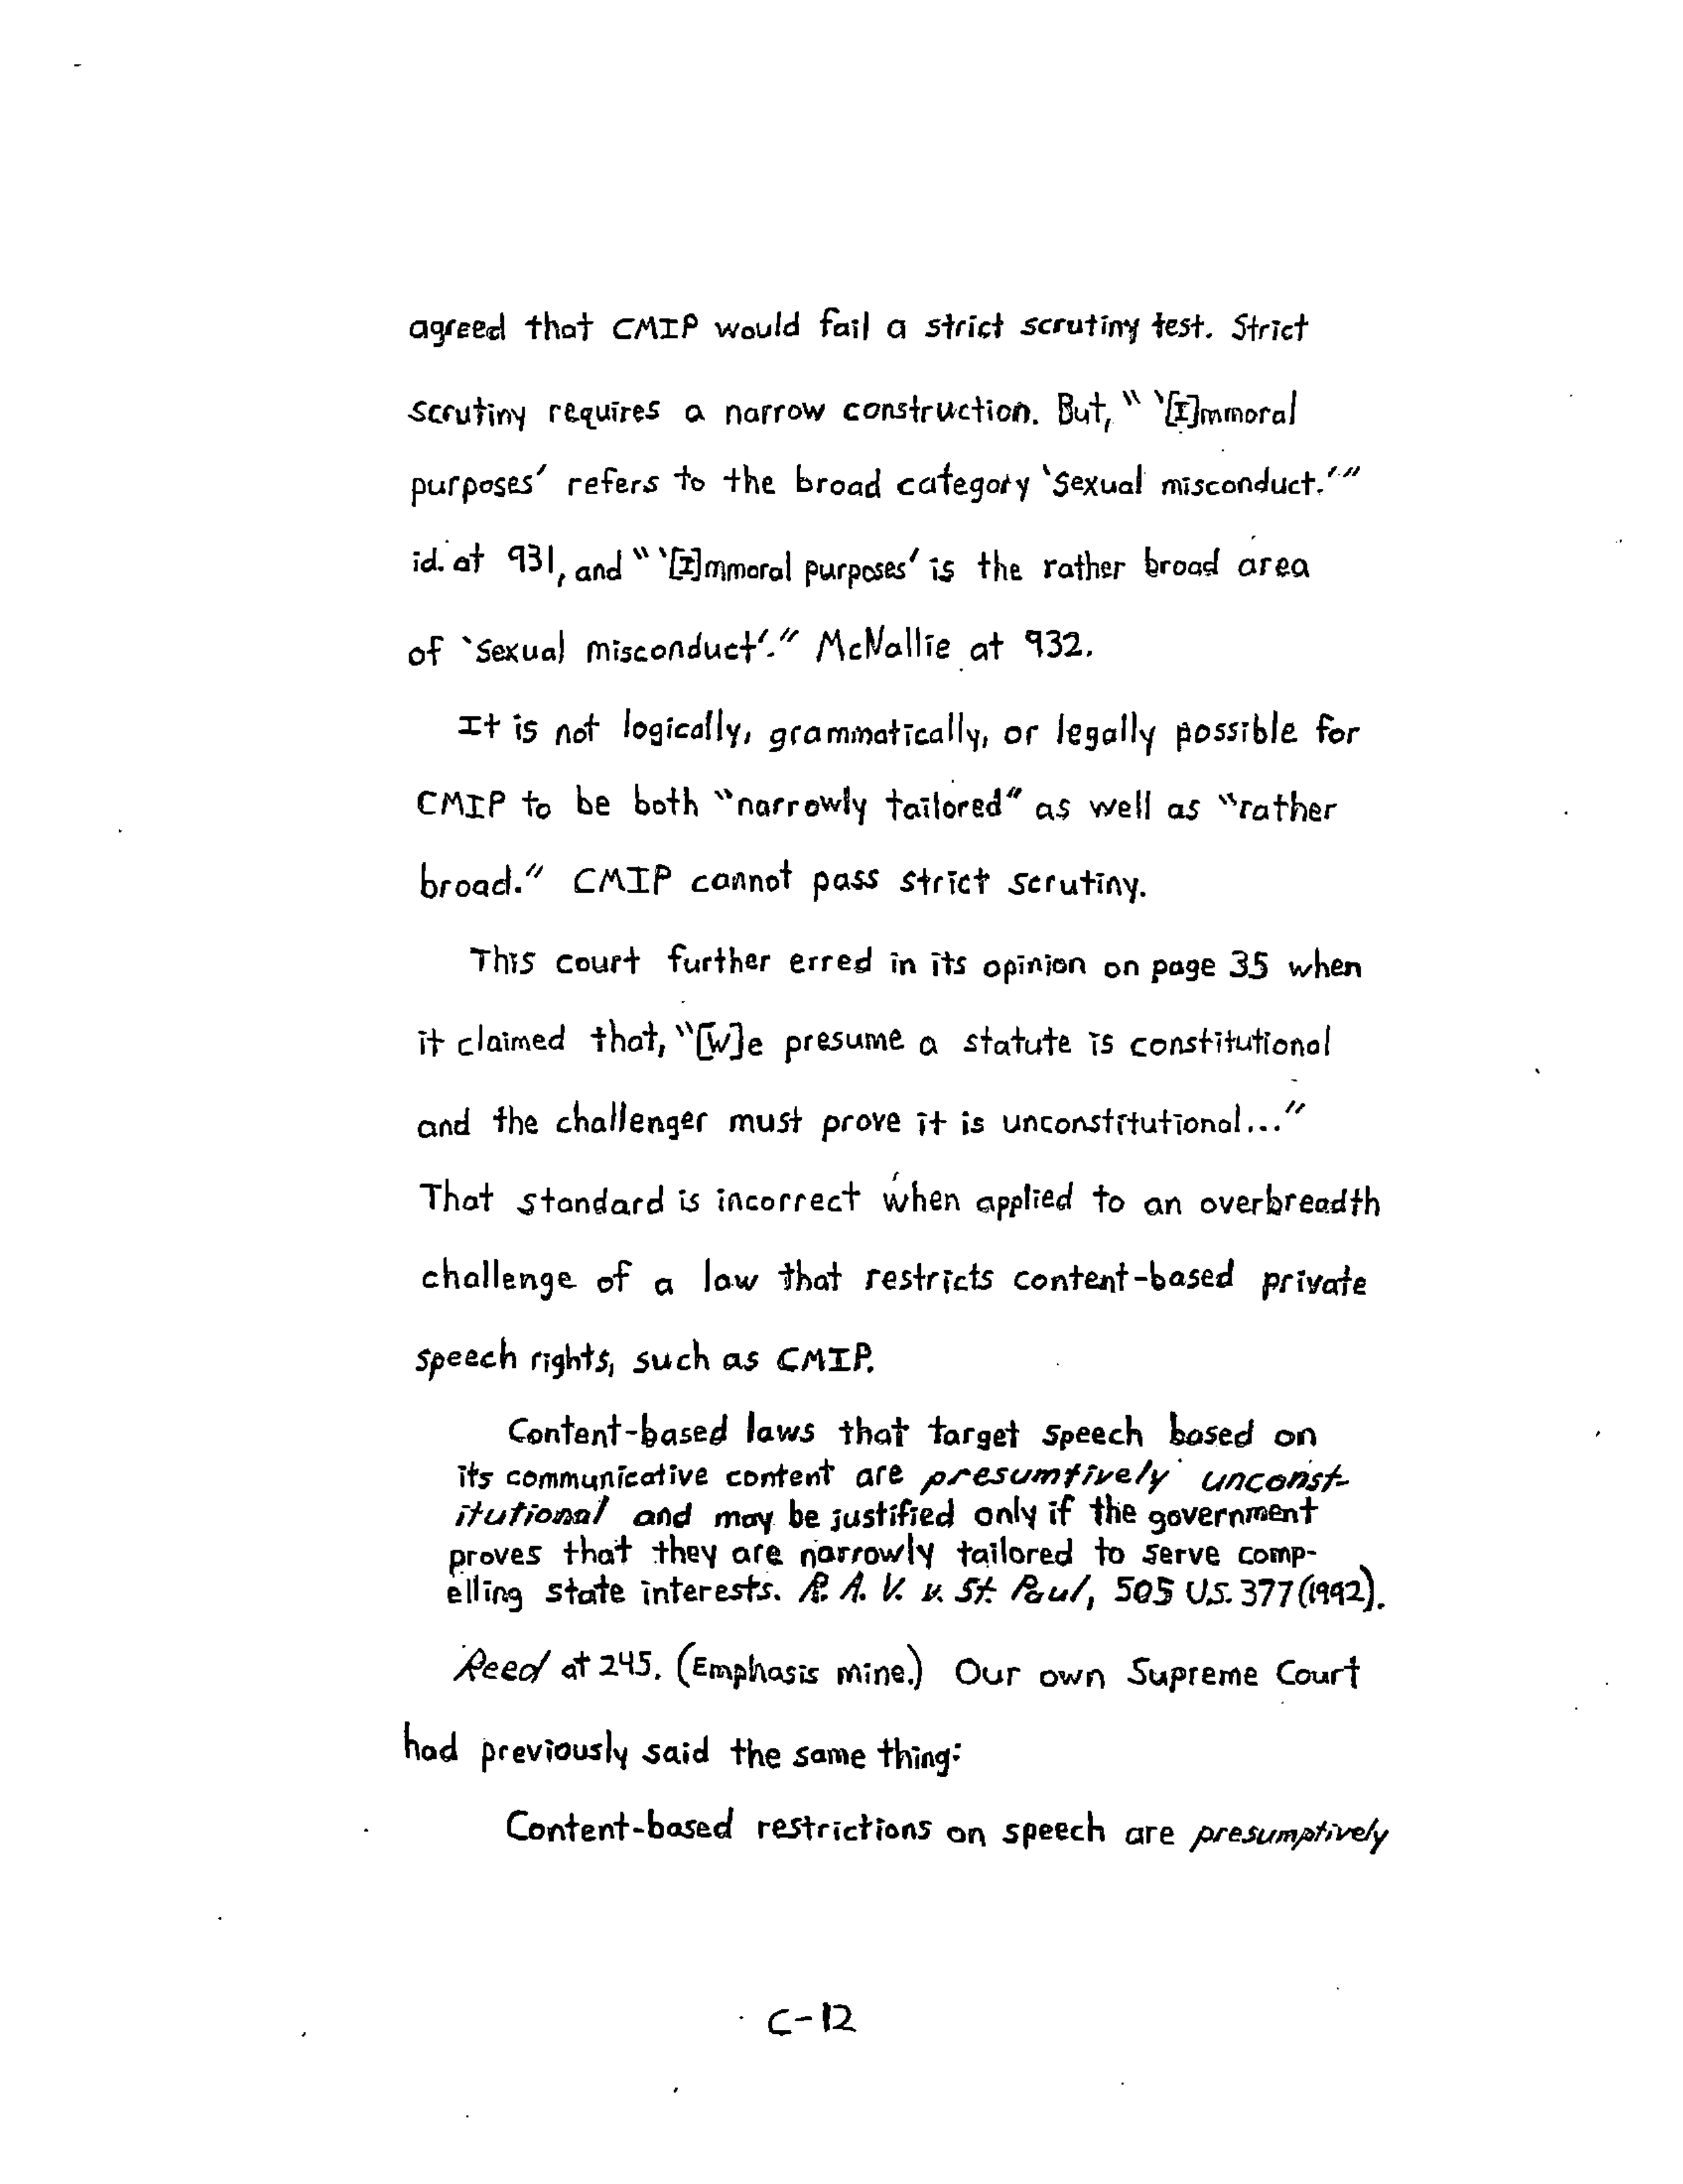 agreed that CMIP would fail a strict scrutiny test. Strict
scrutiny requires a narrow construction. But, " '[I]mmoral
purposes' refers to the broad category 'sexual misconduct.'"
id. at 931, and " '[I]mmoral purposes' is the rather broad area
of 'sexual misconduct'." McNallie at 932.
It is not logically, grammatically, or legally possible for
CMIP to be both "narrowly tailored" as well as "rather
broad." CMIP cannot pass strict scrutiny.
This court further erred in its opinion on page 35 when
it claimed that, "[W]e presume a statute is constitutional
and the challenger must prove it is unconstitutional..."
That standard is incorrect when applied to an overbreadth
challenge of a law that restricts content-based private
speech rights, such as CMIP.
Content-based laws that target speech based on
its communicative content are presumtively unconst-
itutional and may be justified only if the government
proves that they are narrowly tailored to serve comp-
elling state interests. R. A. V. v. St. Paul, 505 U.S. 377 (1992).
Reed at 245. (Emphasis mine.) Our own Supreme Court
had previously said the same thing:
Content-based restrictions on speech are presumptively
C-12